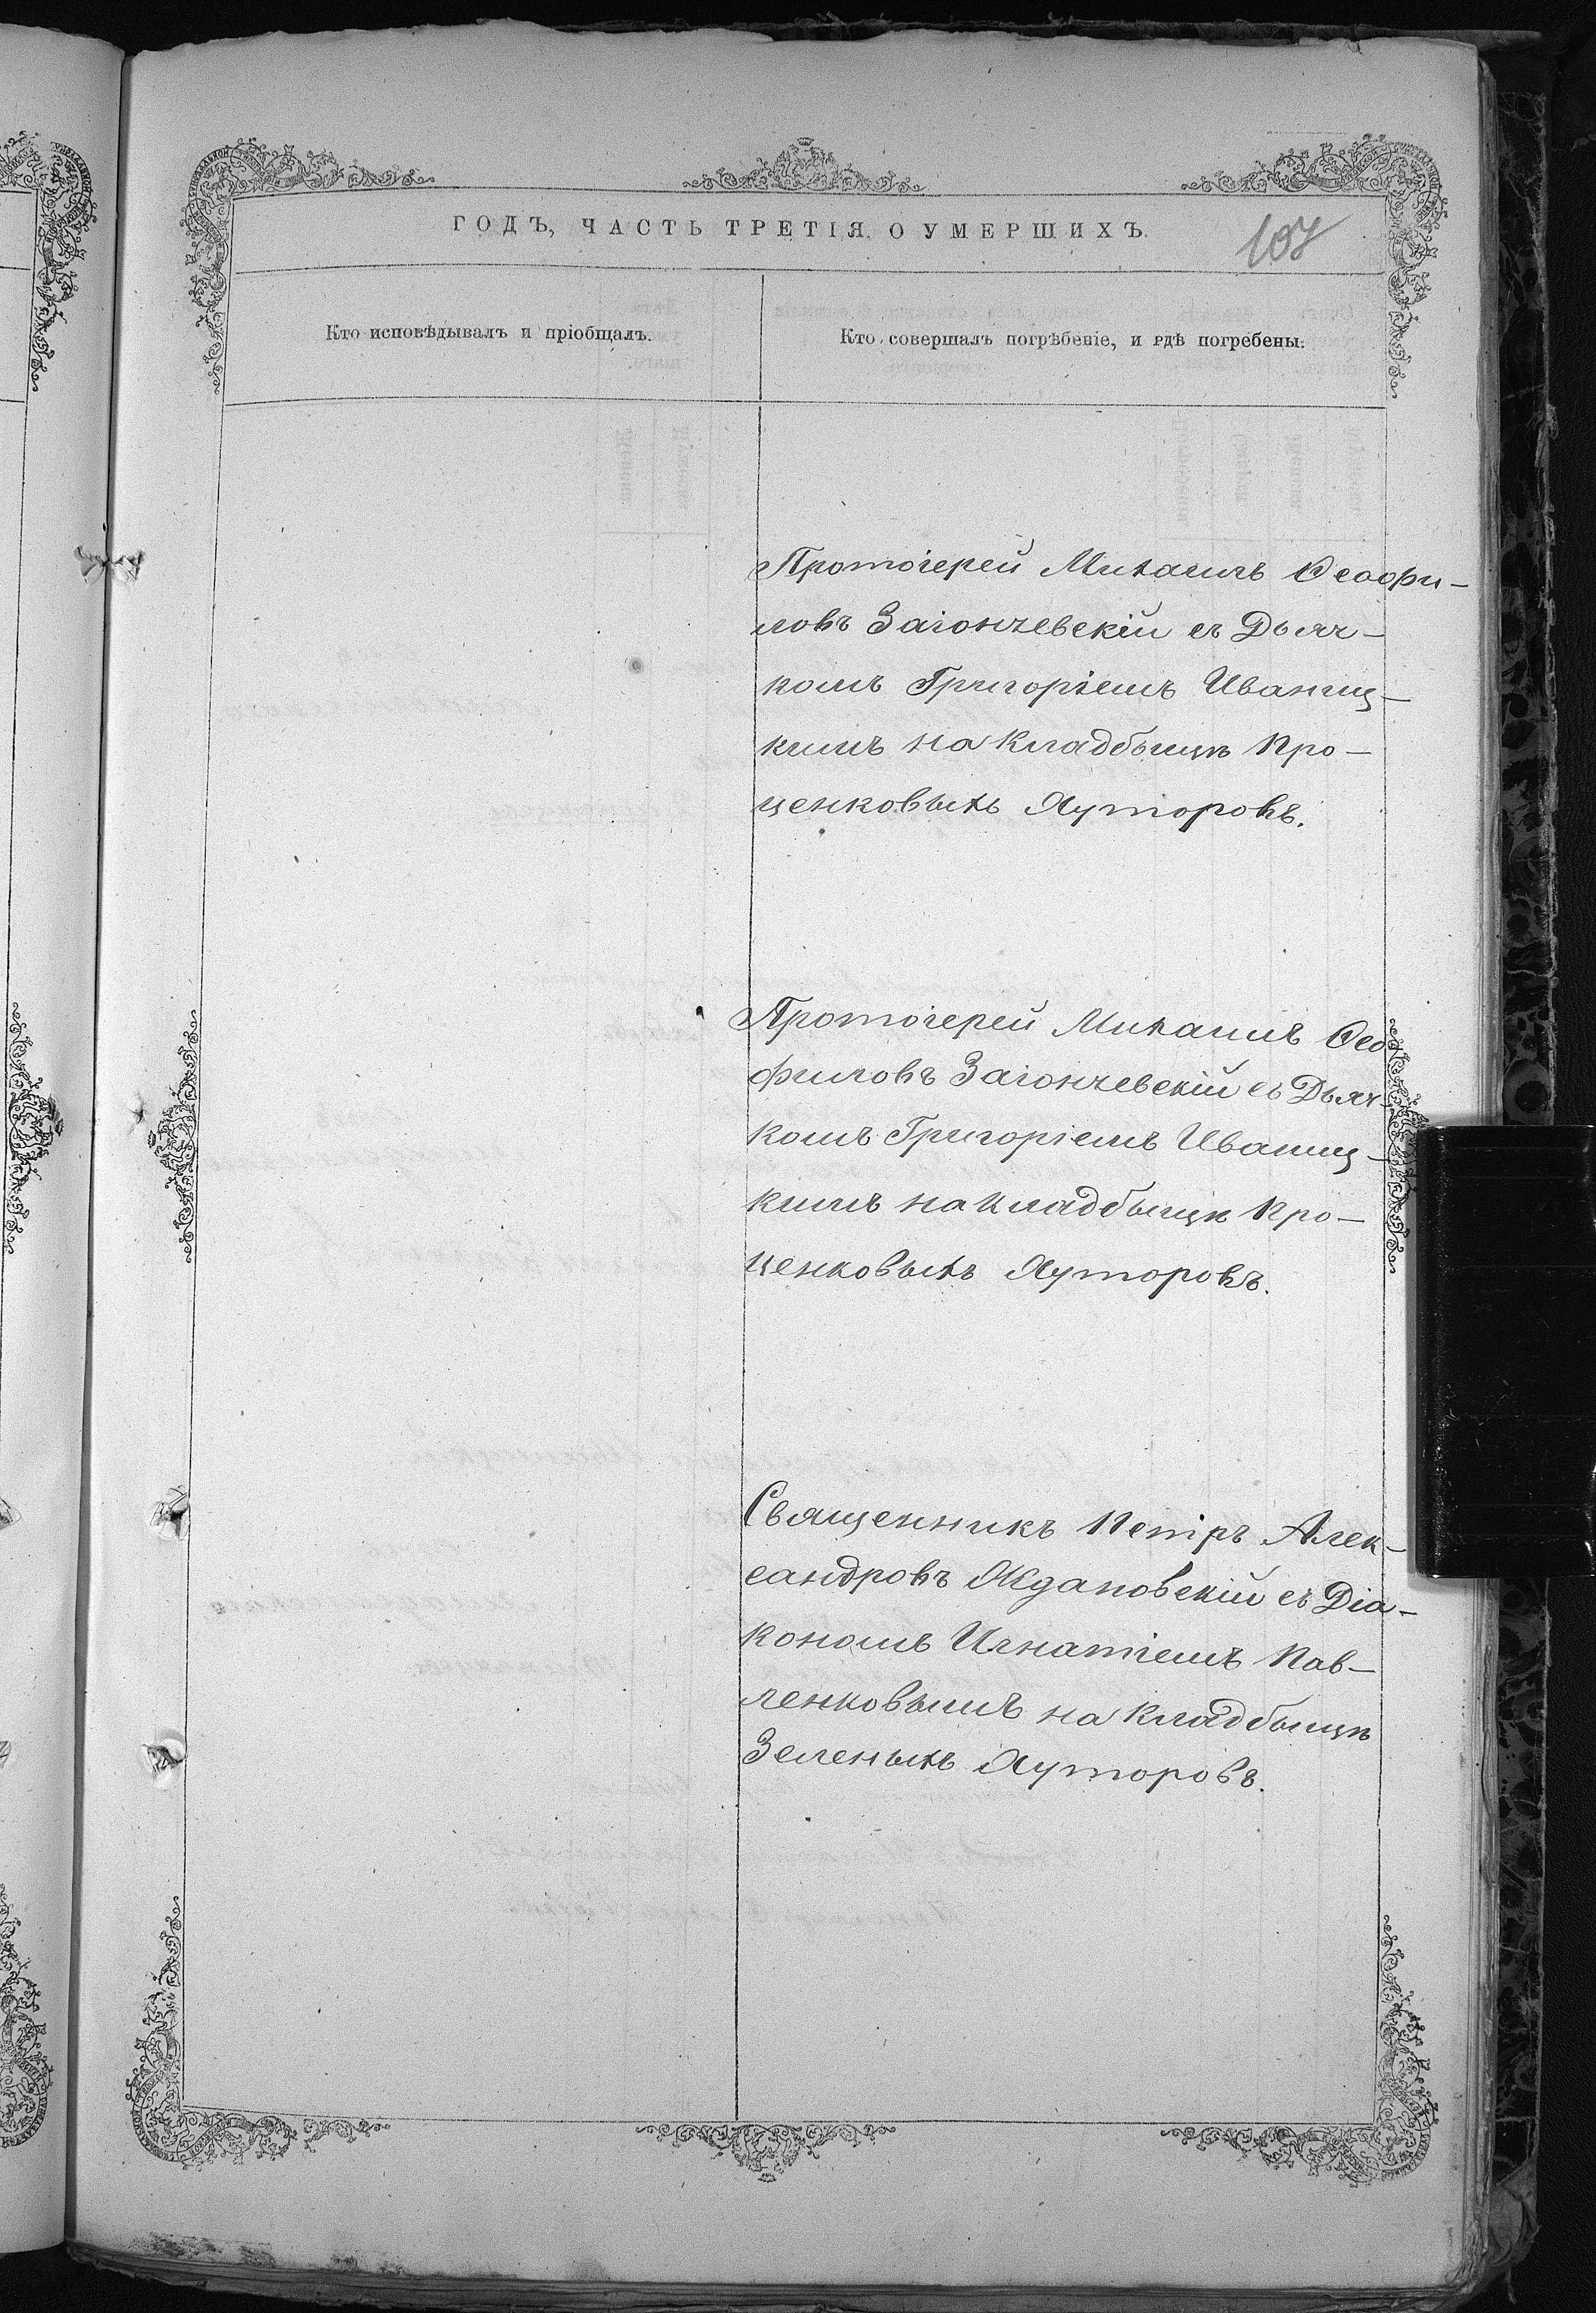 ГОДЪ, ЧАСТЬ ТРЕТІЯ, О УМЕРШИХЪ.
107
Кто исповѣдывалъ и пріобщалъ.
Кто совершалъ погрѣбеніе, и гдѣ погребены.
Протоіерей Михаилъ Ѳеофи-
ловъ Заіончевскій съ Дьяч-
комъ Григоріемъ Иваниц-
кимъ на кладбыщѣ Про-
ценковыхъ Хуторовъ.
Протоіерей Михаилъ Ѳео-
филовъ Заіончевскій съ Дьяч-
комъ Григоріемъ Иваниц-
кимъ на кладбыщѣ Про-
ценковыхъ Хуторовъ.
Священникъ Петръ Алек-
сандровъ Ждановскій съ Діа-
кономъ Игнатіемъ Пав-
ленковымъ на кладбыщѣ
Зеленыхъ Хуторовъ.